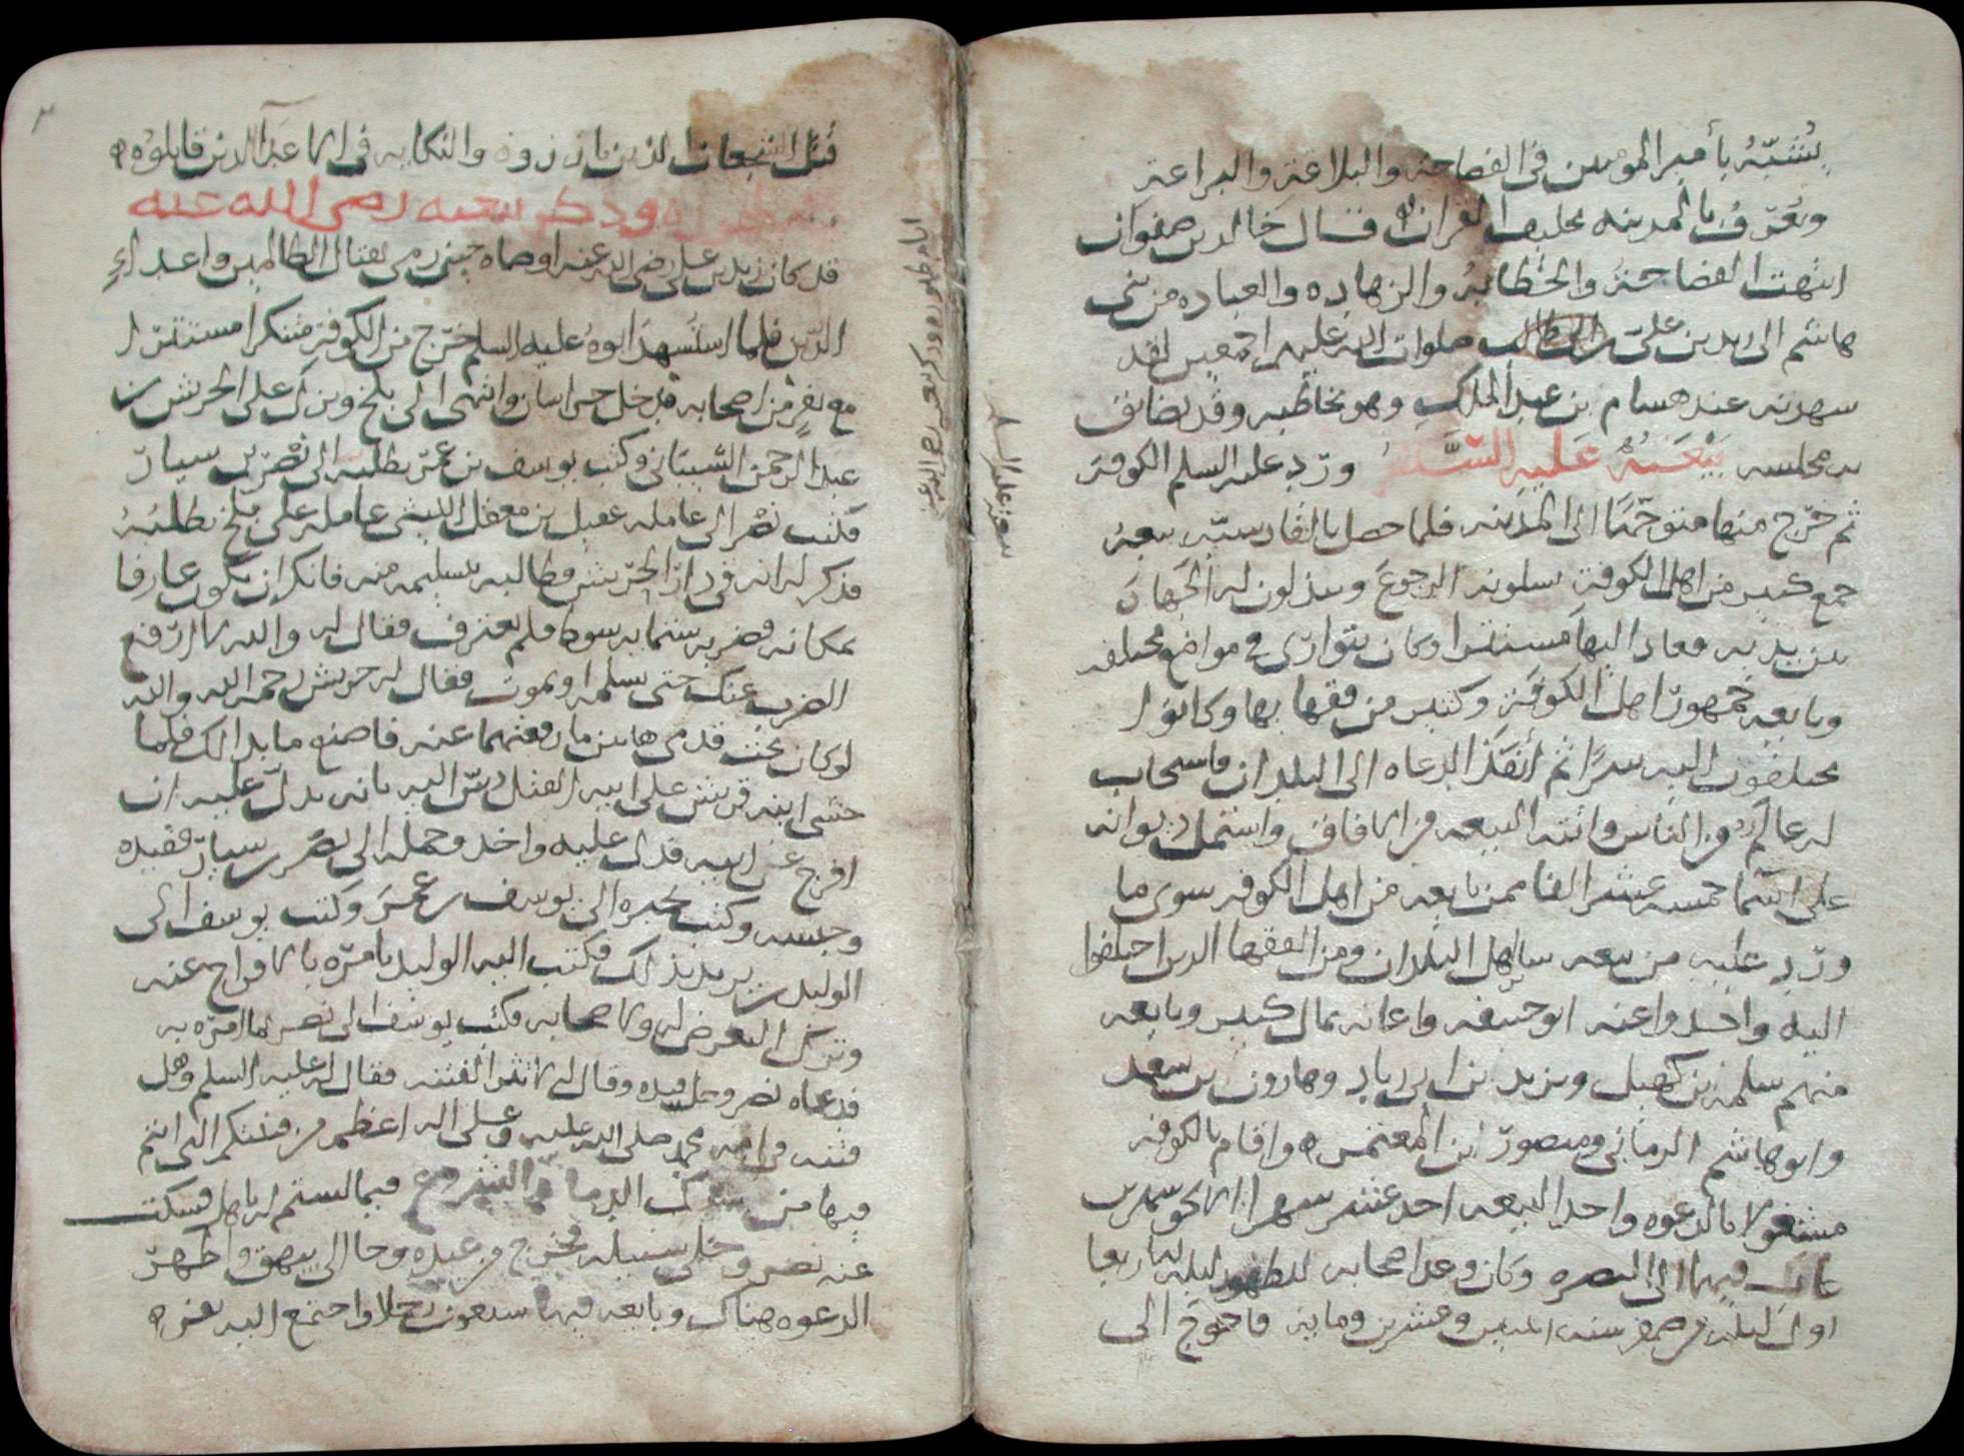 يُشَبَّهُ بأمير المومنين في الفصاحة والبلاغة والبراعة
ويُعرَفُ بالمدينه بحليف القران ه قال خالد بن صفوان
انتهت الفصاحة والخطابة والزهاده والعباده من بني
هاشم الى زيد بن علي صلوات الله عليهم اجمعين لقد
شهدته عند هشام بن عبد الملك وهو يخاطبه وقد تضايق
به مجلسه بَيْعَتُهُ عَلَيهِ السَّلَامُ وَرَدَ عليه السلم الكوفة
ثم خرج منها متوجّهًا الى المدينه فلما حصل بالقادسيّه تبعهُ
جمع كثير من اهل الكوفة يسلونه الرجوعَ ويبذلون له الجهادَ
بين يديه فعاد اليها مستترا وكان يتوارى في مواضع مختلفه
وبايعه جمهور اهل الكوفة وكثير من فقهايها وكانوا
يختلفون اليه سرًا ثم أنفَذَ الدعاه الى البلدان فاستجاب
له عالَم من الناس واتته البيعه من الافاق واشتمل ديوانه
على خمسه عشر الفا ممن بايعه من اهل الكوفه سوى ما
ورد عليه من بيعه ساير اهل البلدان ومن الفقها الذين اختلفوا
اليه واخذوا عنه ابو حنيفه واعانه بمال كثير وبايعه
منهم سلمة بن كهيل ويزيد بن ابي زياد وهارون بن سعد
وابو هاشم الرماني ومنصور ابن المعتمر ه واقام بالكوفه
مشغولا بالدعوه واخذ البيعه احد عشر شهرا الا نحو شهرين
غاب فيها الى البصره وكان وعد اصحابه للظهور ليله الاربعا
اول ليله من صفر سنه اثنتين وعشرين ومايه فاحوج الى
بيعته عليه السلم
٣
قتل الشجعان الذين بارزوه والنكايه في الاعدآ الذين قابلوه ه
وذكر بيعته رضى الله عنه
قد كان زيد بن علي رضى الله عنه اوصاه حين رمى بقتال الظالمين واعداءِ
الدّين فلما استُشهدَ ابوهُ عليه السلم خرج من الكوفة متنكرا مستترا
مع نفرٍ من اصحابه فدخل خراسان وانتهى الى بلخ ونزل على الحريش بن
عبد الرحمن الشيباني وكتب يوسف بن عمر بطلبه الى نصر بن سيار
فكتب نصر الى عامله عقيل بن معقل الليثي عامله على بلخ بطلبه
فذكر له انه في دار الحريش فطالبه بتسليمه منه فانكر ان يكون عارفا
بمكانه فضربه ستمايه سوط فلم يعترف فقال له والله لا ارفع
الضرب عنك حتى تسلمه او تموت فقال له حريش رحمه الله والله
لو كان تحت قدمي هاتين ما رفعتهما عنه فاصنع ما بدا لك فلما
خشى ابنه قريش على ابيه القتل دسّ اليه بانه يدلّ عليه ان
افرج عن ابيه فدل عليه واخذ وحمله الى نصر بن سيار فقيده
وحبسه وكتب بخبره الى يوسف بن عمر وكتب يوسف الى
الوليد بن يزيد بذلك فكتب اليه الوليد يامره بالافراج عنه
وترك التعرض له ولاصحابه فكتب يوسف الى نصر بما امره به
فدعاه نصر وحل قيده وقال له لا تثر الفتنه فقال له عليه السلم وهل
فتنه في امه محمد صلى الله عليه وعلى اله اعظم من فتنتكم التي انتم
فيها من سفك الدما والشروع فيما لستم له باهل فسكت
عنه نصر وخلى سبيله فخرج من عنده وجا الى بيهق واظهر
الدعوه هناك وبايعه فيها سبعون رجلا واجتمع اليه نفر ه
ايام ظهوره وذكر بيعته رضى الله عنه